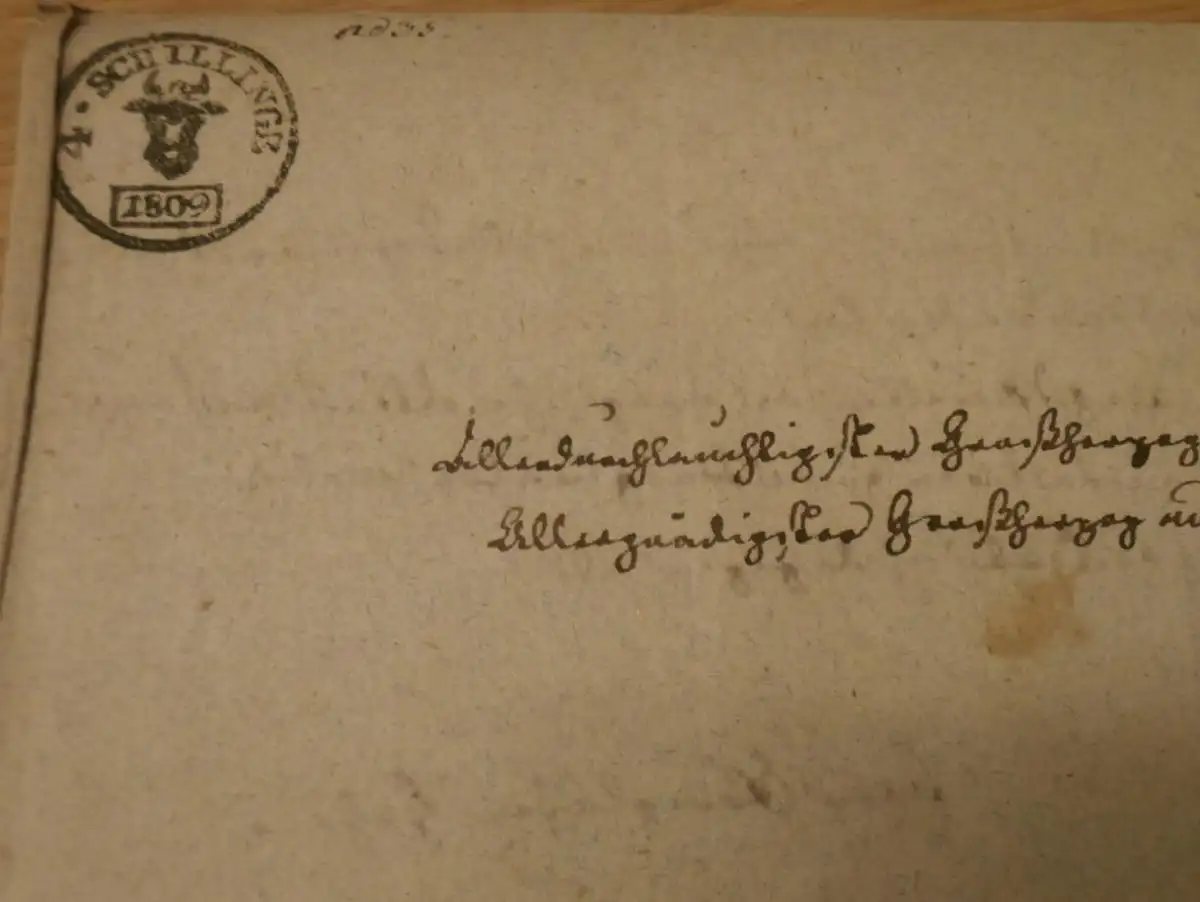 4 · SCHILLINGE
1809
Allerdurchlauchtigster Großherzog
Allergnädigster Großherzog